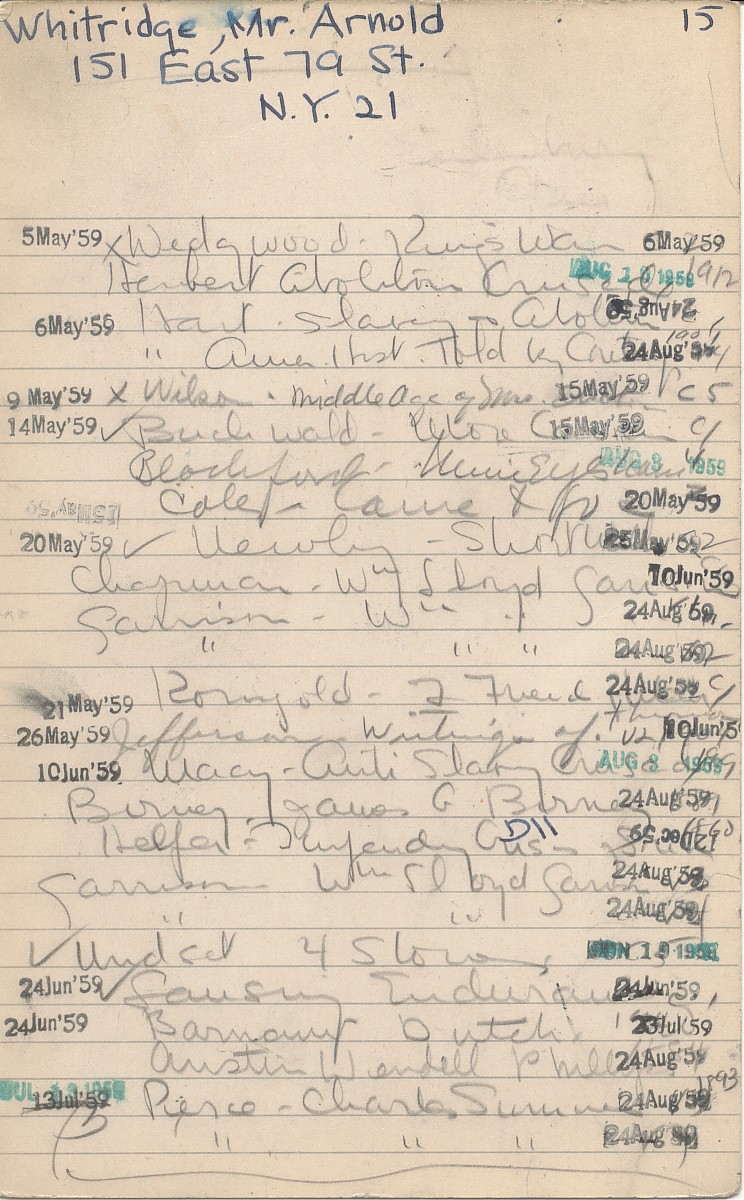 Whitridge, Mr. Arnold 15
151 East 79 St.
N.Y. 21
5May'59 x Wedgwood - King's War 6May'59
Herbert Abolition Crusade AUG 1959 1912
6May'59 Hart - Slavery & Abolition 24Aug'59
" Amer. Hist. Told by 24Aug'59
9May'59 x Wilson - Middle Age of Mrs. 15May'59 C5
14May'59 ✓ Buchwald - More 15May'59
Blackford - Mine Eyes AUG 3 1959
15May'59 Coles - Came & 20May'59
20May'59 ✓ Newby - Short Walk 25May'59
Chapman - Wm Lloyd Garrison 10Jun'59
Garrison - Wm " 24Aug'59
" " " 24Aug'59
21May'59 Korngold - 2 Friends 24Aug'59
26May'59 Jefferson - Writings of. V2 10Jun'5
10Jun'59 Macy - Anti Slavery Crusade AUG 3 1959
Birney, James G Birney 24Aug'59
Helper - Impending Crisis D11 Dec'59
Garrison Wm Lloyd Garrison 24Aug'59
" " 24Aug'59
✓ Undset 4 Stories JUN 19 1959
24Jun'59 ✓ Lansing Endurance Jun'59
24Jun'59 Barnouw Dutch 23Jul'59
Austin Wendell Phillips 24Aug'59
13Jul'59 Pierce - Charles Sumner 1893 24Aug'59
" " " 24Aug'59